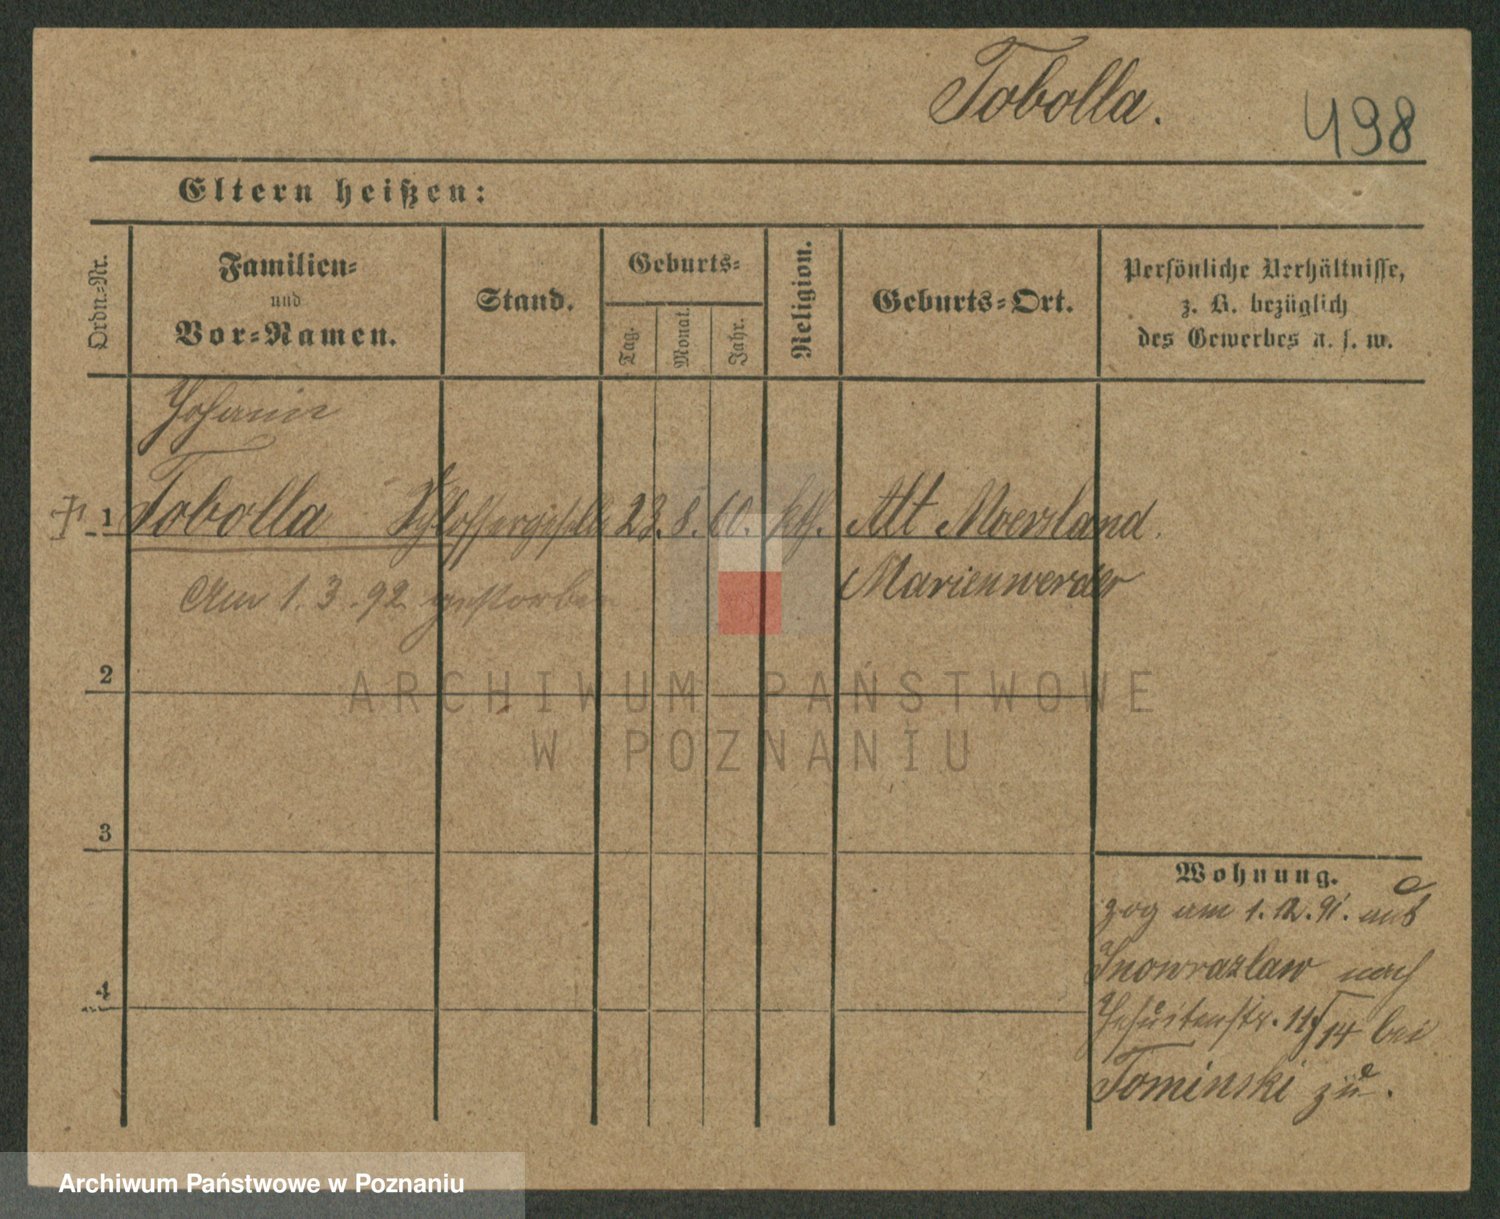 Tobolla.
498
Eltern heißen:
Ordn.-Nr.
Familien-
und
Vor-Namen.
Stand.
Geburts-
Tag.
Monat.
Jahr.
Religion.
Geburts-Ort.
Persönliche Verhältnisse,
z. B. bezüglich
des Gewerbes u. s. w.
Johann
1 Tobolla Schlossergeselle 23. 8. 60. kth. Alt Moesland.
Marienwerder
Am 1.3.92 gestorben
2
3
4
Wohnung.
zog am 1.12.91. aus
Inowrazlaw nach
Jesuitenstr. 11/14 bei
Tominski zu.
ARCHIWUM PAŃSTWOWE
W POZNANIU
Archiwum Państwowe w Poznaniu